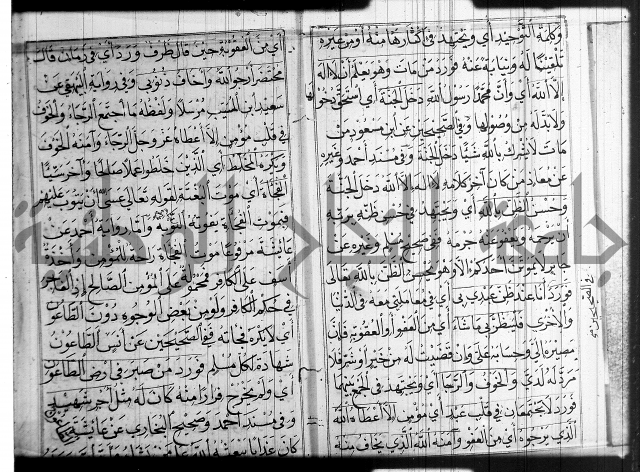 وكلمة التوحيد أي ويجتهد في اكثارها منه او من غيره
تلقينا له ونيابة عنه فورد من مات وهو يعلم ان لا اله
الا الله أي وأنّ محمّدا رسول الله دخل الجنة أي استحق دخولها
ولابد له من وصولها وفي الصحيحين عن ابن مسعود من
مات لا يشرك بالله شيئا دخل الجنة وفي مسند احمد وغيره
عن معاذ من كان آخر كلامه لا اله الا الله دخل الجنة
وحسن الظن بالله أي ويجتهد في حسن ظنه بربه
ان يرحمه ويعفو عنه جرمه ففي صحيح مسلم وغيره عن
جابر لا يموت احدكم الا وهو يحسن الظن بالله تعالى
فورد أنا عند ظن عبدي بي أي في معاملتي معه في الدنيا
والاخرى فليظن بي ما شاء أي من العفو أو العقوبة فان
مصيره الي وحسابه علي وان قضيت له من خير او شر فلا
مرد له لدي والخوف والرجا أي ويجتهد في الجمع بينهما
فورد لا يجتمعان في قلب عبد أي مؤمن الا اعطاه الله
الذي يرجوه أي من العفو وآمنه الله الذي يخاف منه
أي من العقوبة حين قال ظرف ورد أي في زمان قالت
محتضر ارجو الله واخاف ذنوبي وفي رواية البيهقي عن
سعيد ابن المسيب مرسلا ولفظه ما اجتمع الرجاء والخوف
في قلب مؤمن الا اعطاه عز وجل الرجاء وآمنه الخوف
ويكره المخلط أي الذين خلطوا عملا صالحا وآخر سيئا
الفجأة أي موت البغتة لقوله تعالى عسى ان يتوب عليهم
فبموت الفجأة يفوته التوبة واما رواية احمد عن
عائشة مرفوعا موت الفجأة راحة للمؤمن وأخذة
أسف على الكافر فمحمولة على المؤمن الصالح اذ الفاجر
في حكم الكافر ولو من بعض الوجوه دون الطاعون
أي لا يكره فجاته ففي الصحيحين عن أنس الطاعون
شهادة لكل مسلم فورد من صبر في ارض الطاعون
أي ولم يخرج فرارا منه كان له مثل أجر شهيد
وفي مسند احمد وصحيح البخاري عن عائشة
كان عذابا يبعثه الله
جامعة النجاح الوطنية